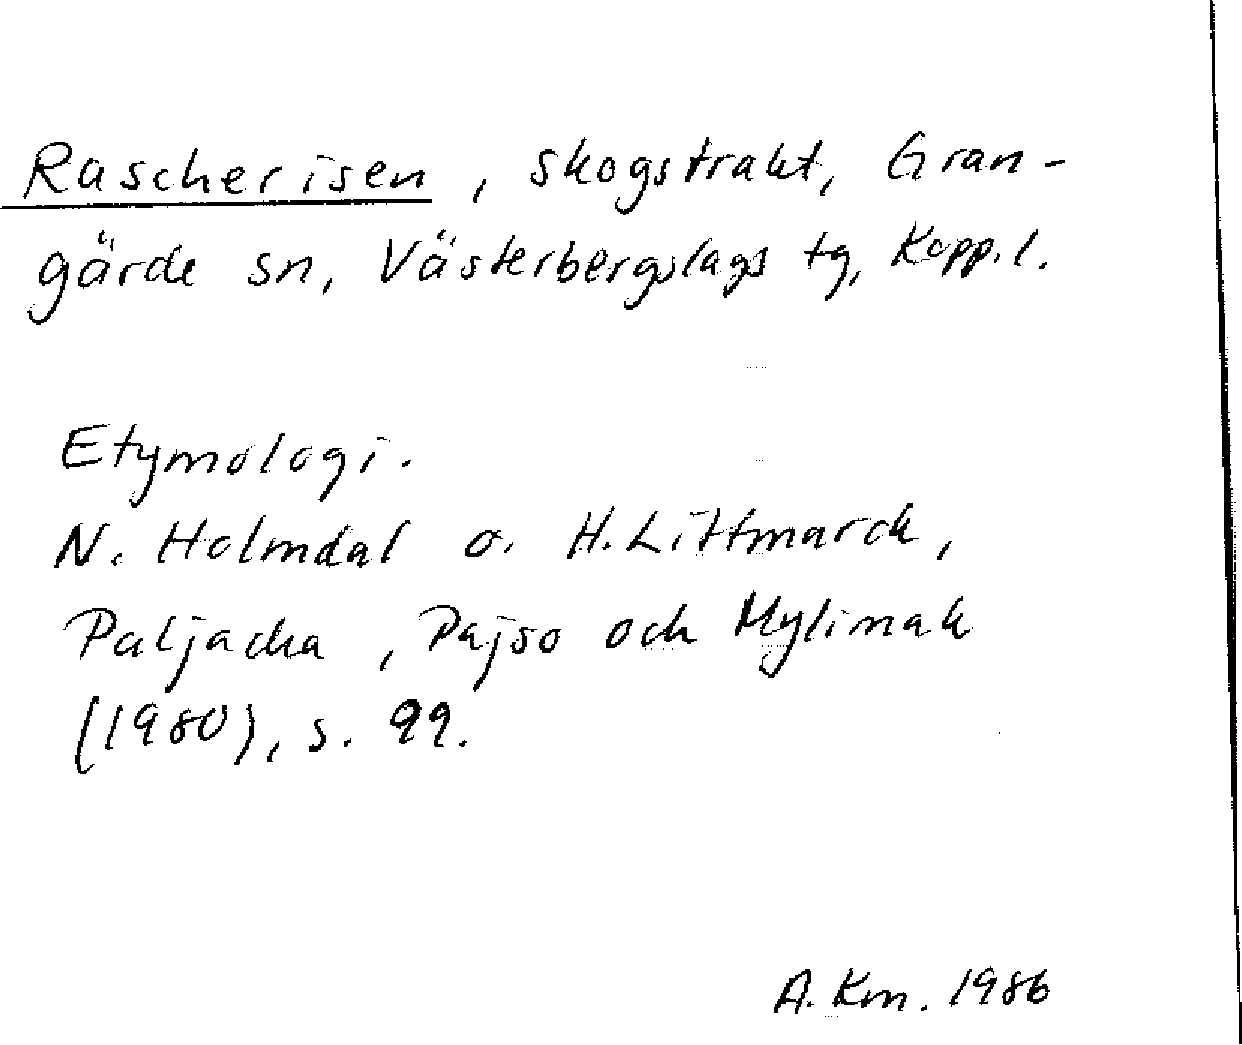 Rascherisen, skogstrakt, Gran-
gärde sn, Västerbergslags tg, Kopp.l.
Etymologi.
N. Holmdal o. H. Littmarck,
Paljacka, Pajso och Mylimak
(1980), s. 99.
A. Km. 1986